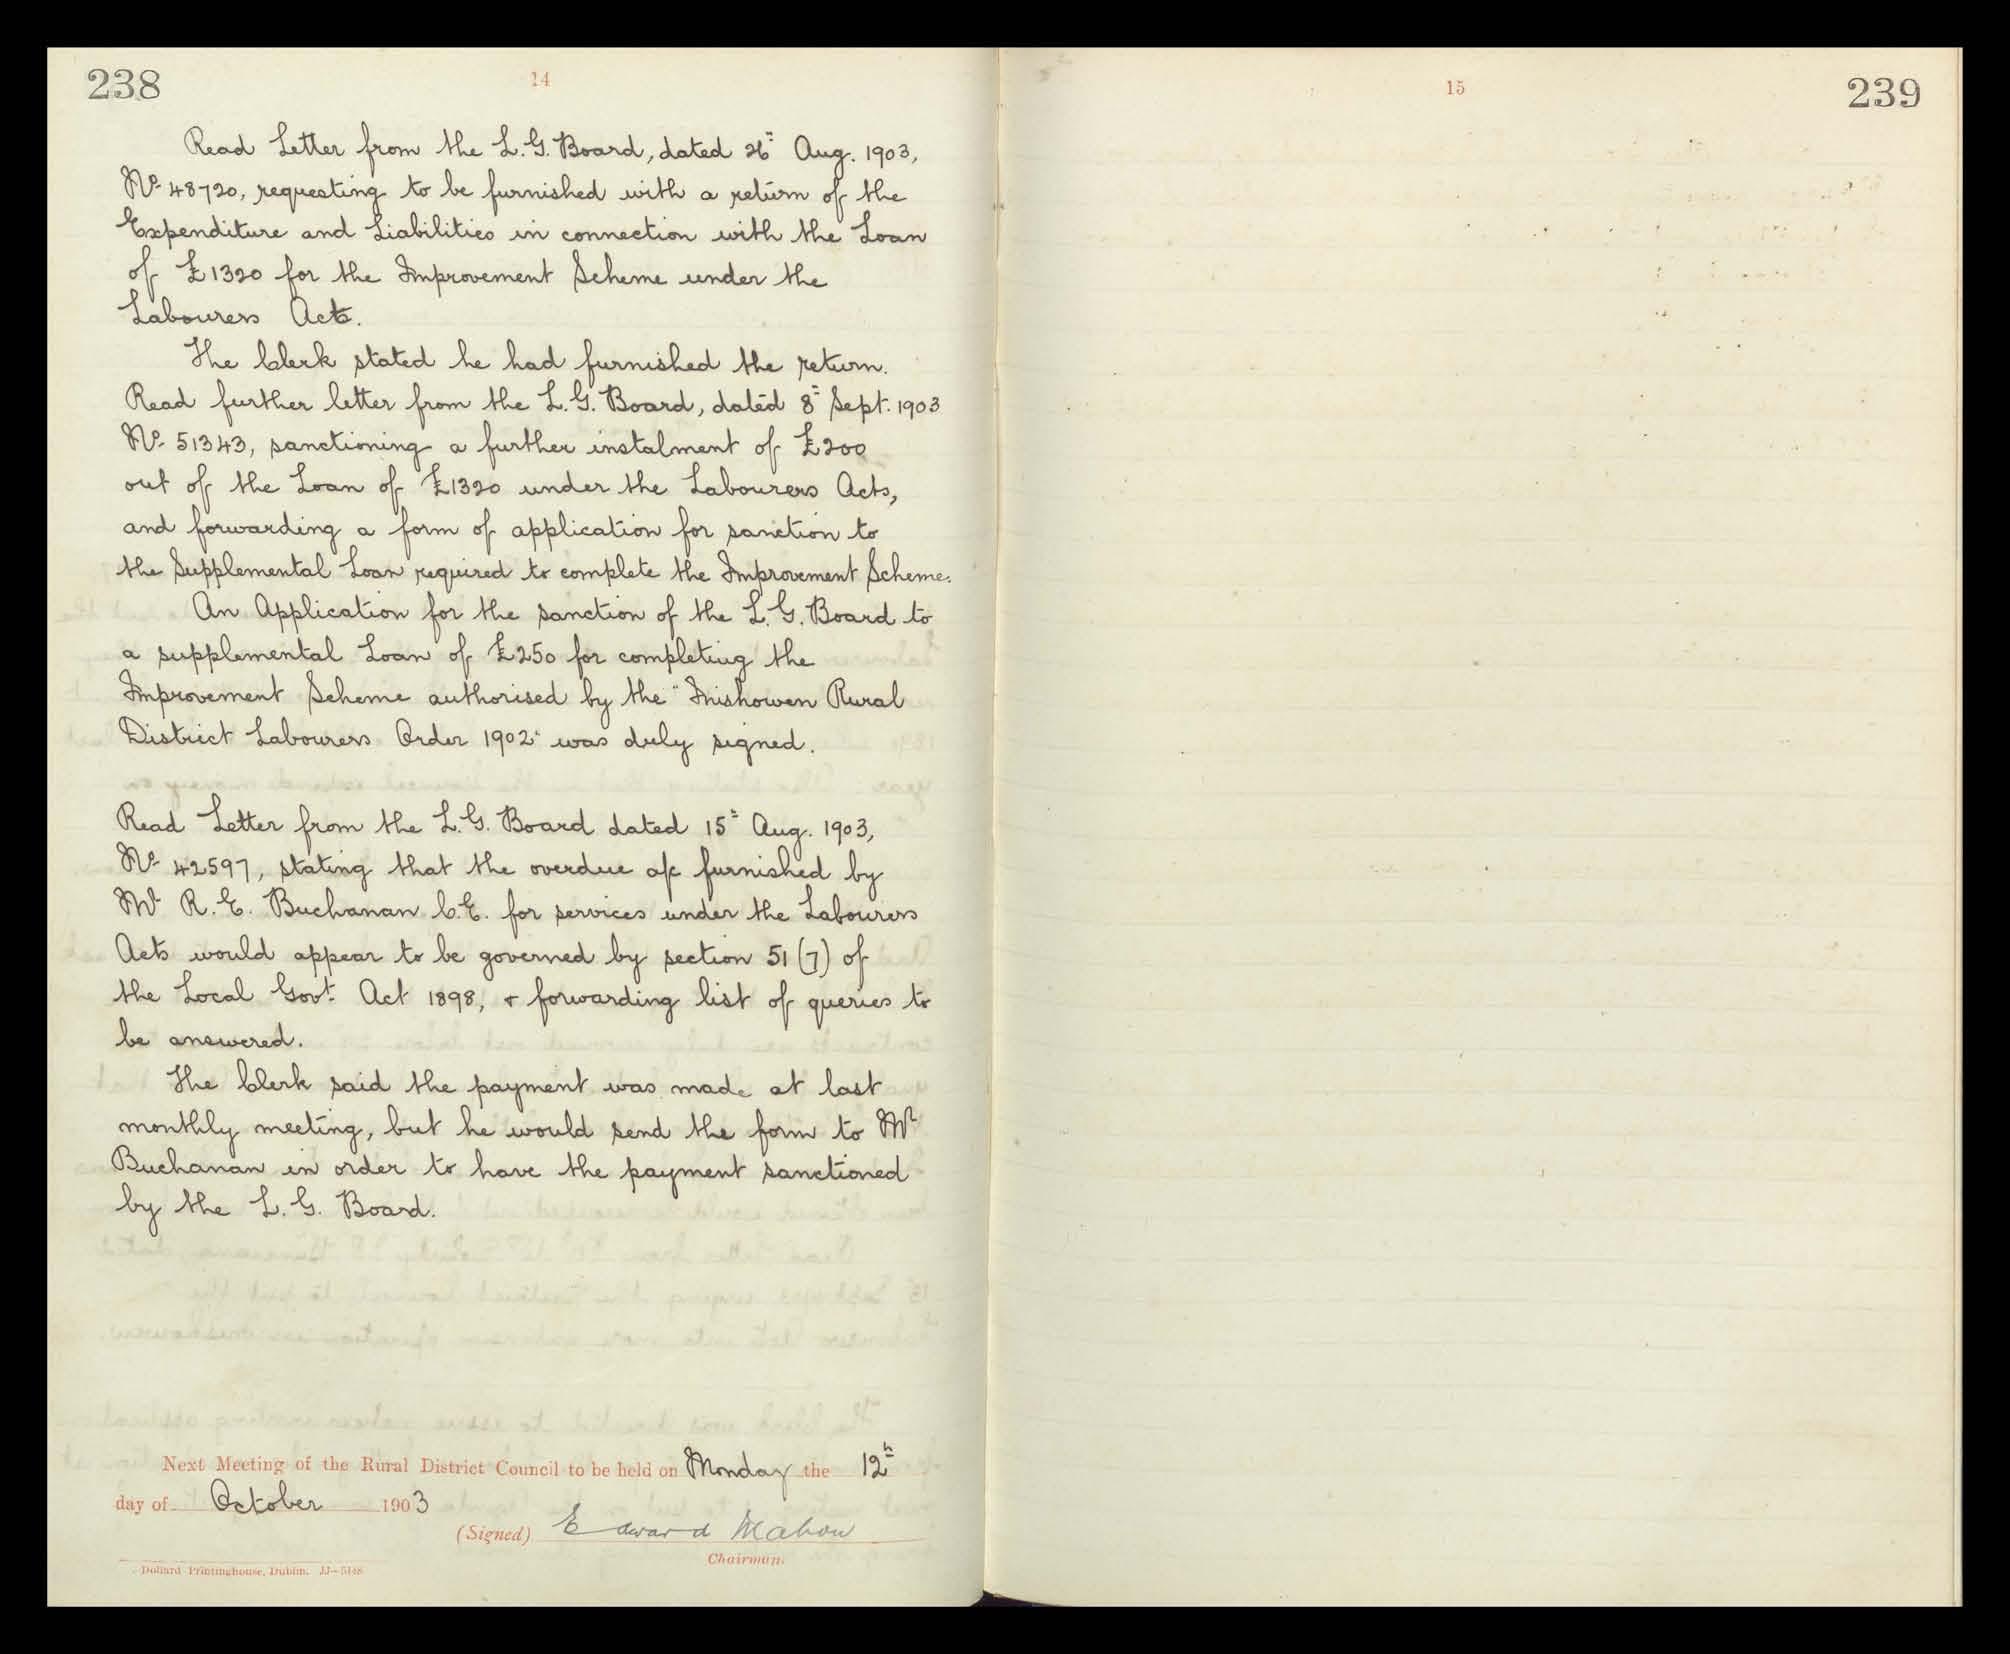 238
14
Read Letter from the L.G. Board, dated 26th Aug. 1903,
No. 48720, requesting to be furnished with a return of the
Expenditure and Liabilities in connection with the Loan
of £1320 for the Improvement Scheme under the
Labourers Acts.
The Clerk stated he had furnished the return.
Read further letter from the L.G. Board, dated 8th Sept. 1903
No. 51343, sanctioning a further instalment of £200
out of the Loan of £1320 under the Labourers Acts,
and forwarding a form of application for sanction to
the Supplemental Loan required to complete the Improvement Scheme.
An Application for the sanction of the L.G. Board to
a supplemental Loan of £250 for completing the
Improvement Scheme authorised by the "Inishowen Rural
District Labourers Order 1902" was duly signed.
Read Letter from the L.G. Board dated 15th Aug. 1903,
No. 42597, stating that the overdue a/c furnished by
Mr R.E. Buchanan C.E. for services under the Labourers
Acts would appear to be governed by section 51(7) of
the Local Govt. Act 1898, & forwarding list of queries to
be answered.
The Clerk said the payment was made at last
monthly meeting, but he would send the form to Mr
Buchanan in order to have the payment sanctioned
by the L.G. Board.
Next Meeting of the Rural District Council to be held on Monday the 12th
day of October 1903
(Signed) Edward Mahon
Chairman.
Dollard Printinghouse, Dublin.
15
239